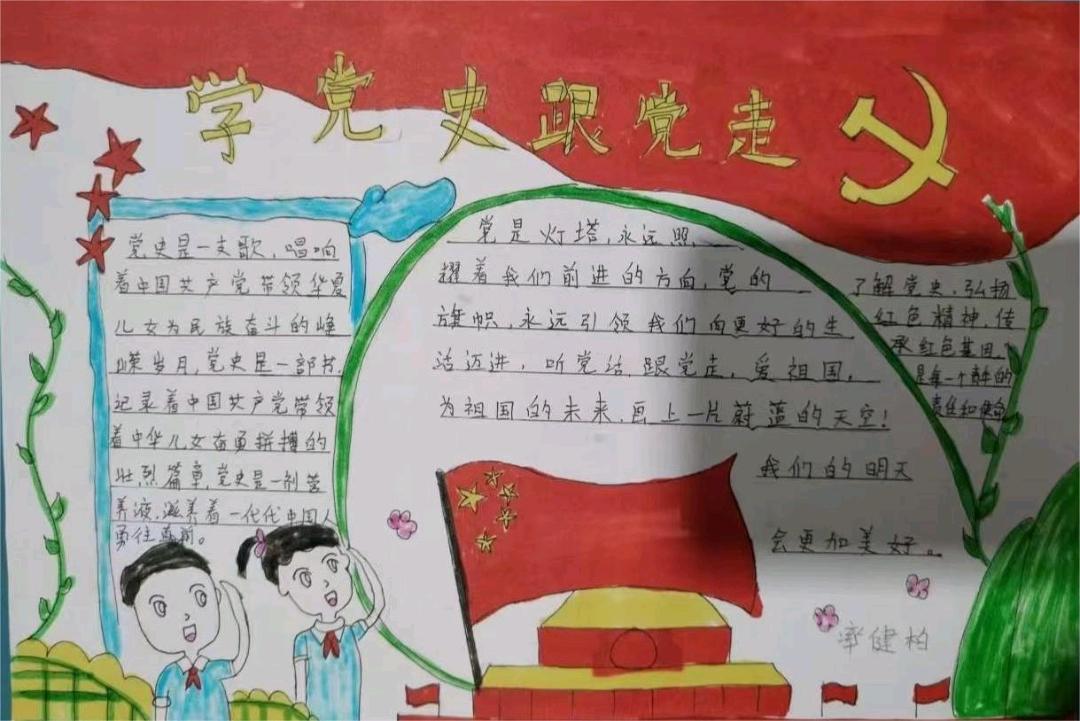 学党史跟党走
党史是一支歌，唱响
着中国共产党带领华夏
儿女为民族奋斗的峥
嵘岁月，党史是一部书，
记录着中国共产党带领
着中华儿女奋勇拼搏的
壮烈篇章，党史是一剂营
养液，滋养着一代代中国人
勇往直前。
党是灯塔，永远照
耀着我们前进的方向，党的
旗帜，永远引领我们向更好的生
活迈进，听党话，跟党走，爱祖国，
为祖国的未来，画上一片蔚蓝的天空！
我们的明天
会更加美好。
了解党史，弘扬
红色精神，传
承红色基因，
是每一个青年的
责任和使命
健柏